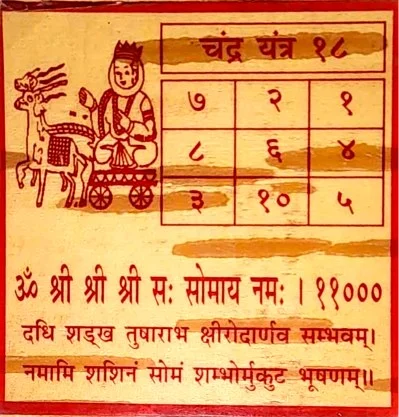 चंद्र यंत्र १८
७ २ १
८ ६ ४
३ १० ५
ॐ श्री श्री श्री सः सोमाय नमः । ११०००
दधि शङ्ख तुषाराभ क्षीरोदार्णव सम्भवम्।
नमामि शशिनं सोमं शम्भोर्मुकुट भूषणम्॥